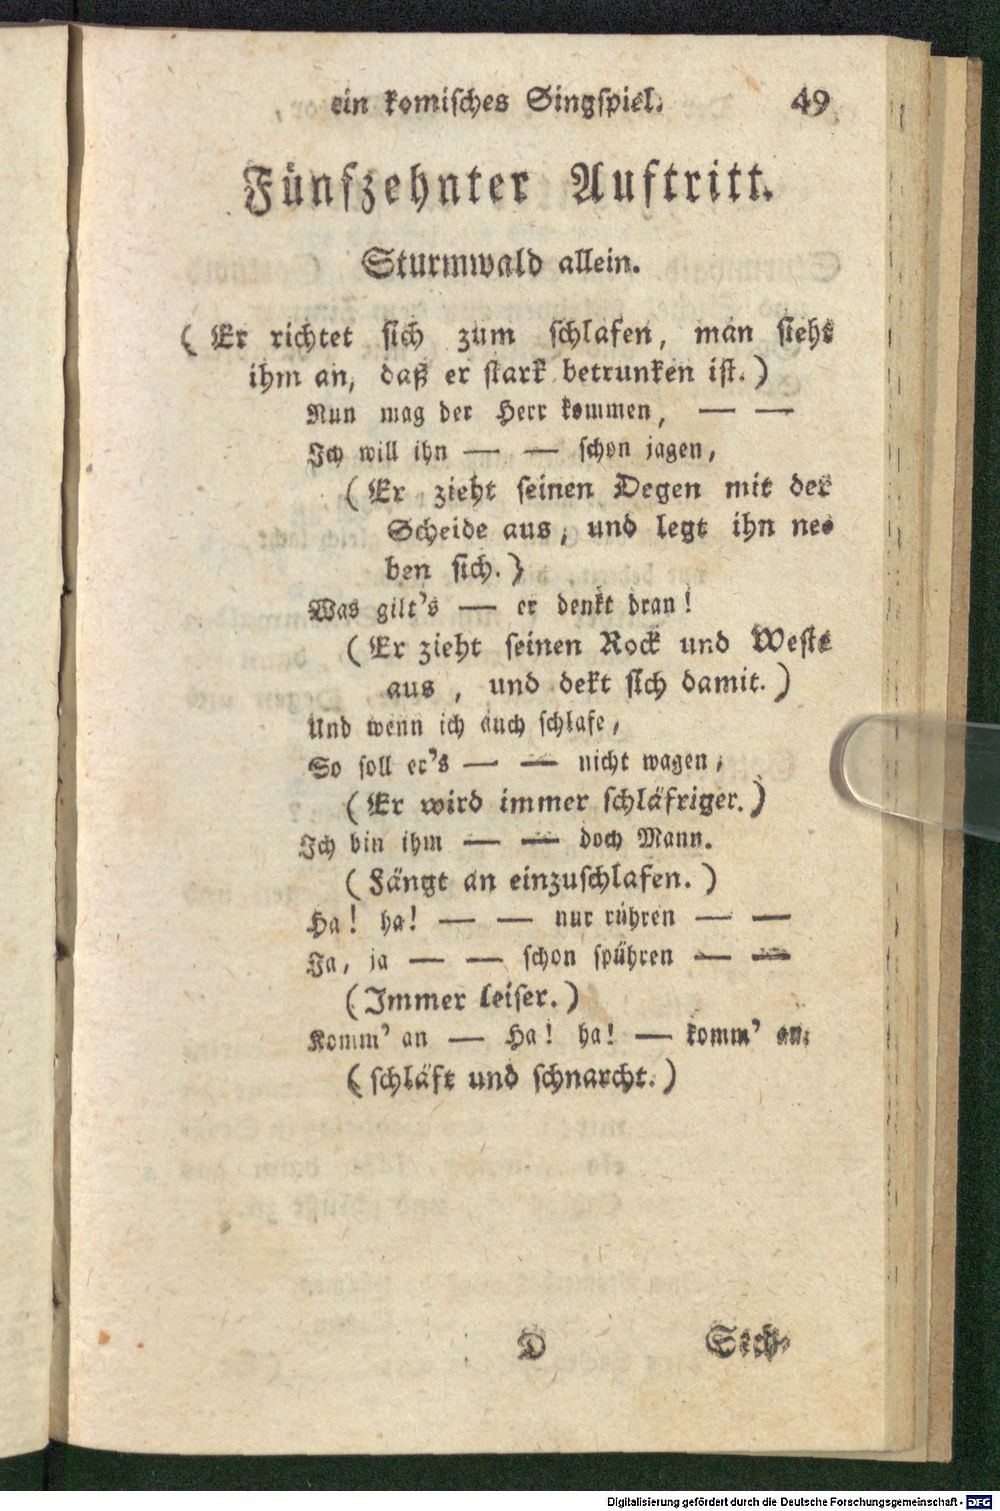 ein komisches Singspiel. 49
Fünfzehnter Auftritt.
Sturmwald allein.
( Er richtet sich zum schlafen, man sieht
ihm an, daß er stark betrunken ist. )
Nun mag der Herr kommen, — —
Ich will ihn — — schon jagen,
( Er zieht seinen Degen mit der
Scheide aus, und legt ihn ne-
ben sich. )
Was gilt's — er denkt dran!
( Er zieht seinen Rock und Weste
aus, und dekt sich damit. )
Und wenn ich auch schlafe,
So soll er's — — nicht wagen,
( Er wird immer schläfriger. )
Ich bin ihm — — doch Mann.
( Fängt an einzuschlafen. )
Ha! ha! — — nur rühren — —
Ja, ja — — schon spühren — —
( Immer leiser. )
Komm' an — Ha! ha! — komm' an.
( schläft und schnarcht. )
D Sech-
Digitalisierung gefördert durch die Deutsche Forschungsgemeinschaft - DFG